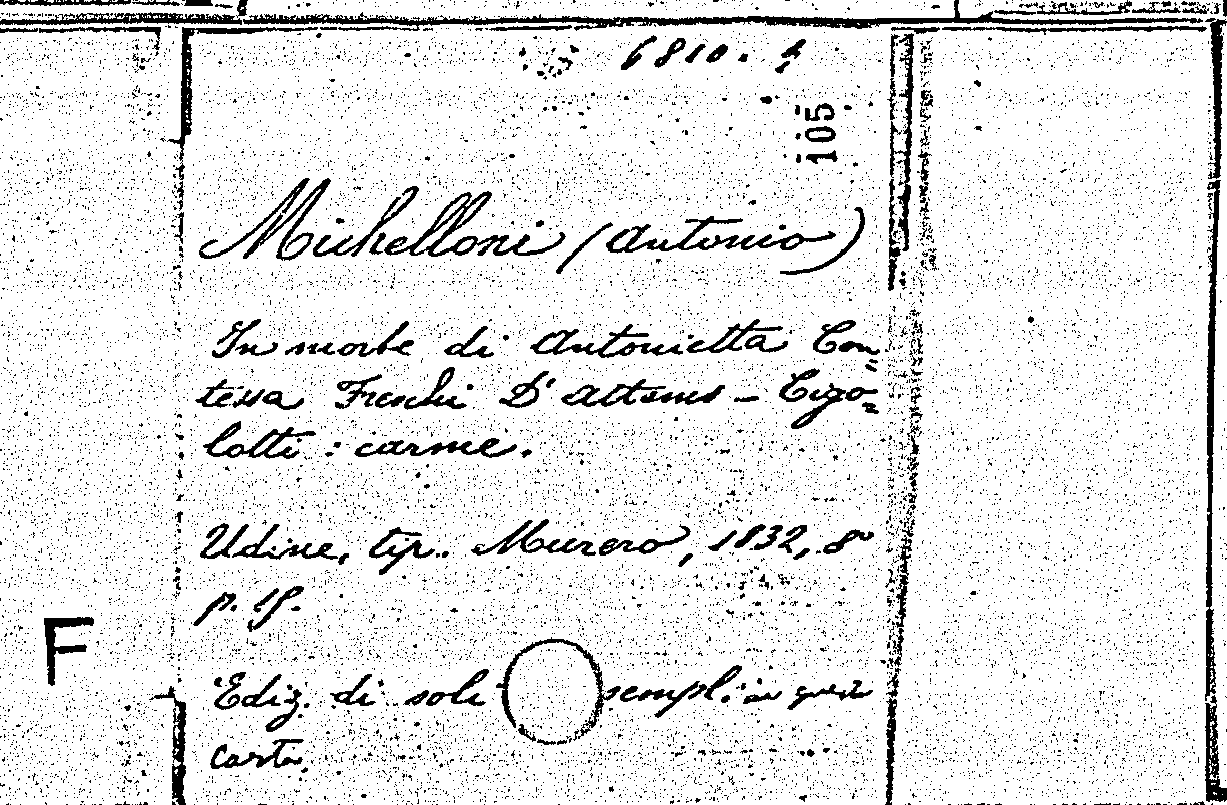 6810.
105
Michelloni (Antonio)
In morte di Antonietta Con„
tessa Freschi D'Attems - Cigo„
lotti : carme.
Udine, tip. Murero, 1832, 8°
p.
F
Ediz. di soli sempl. in questa
carta.